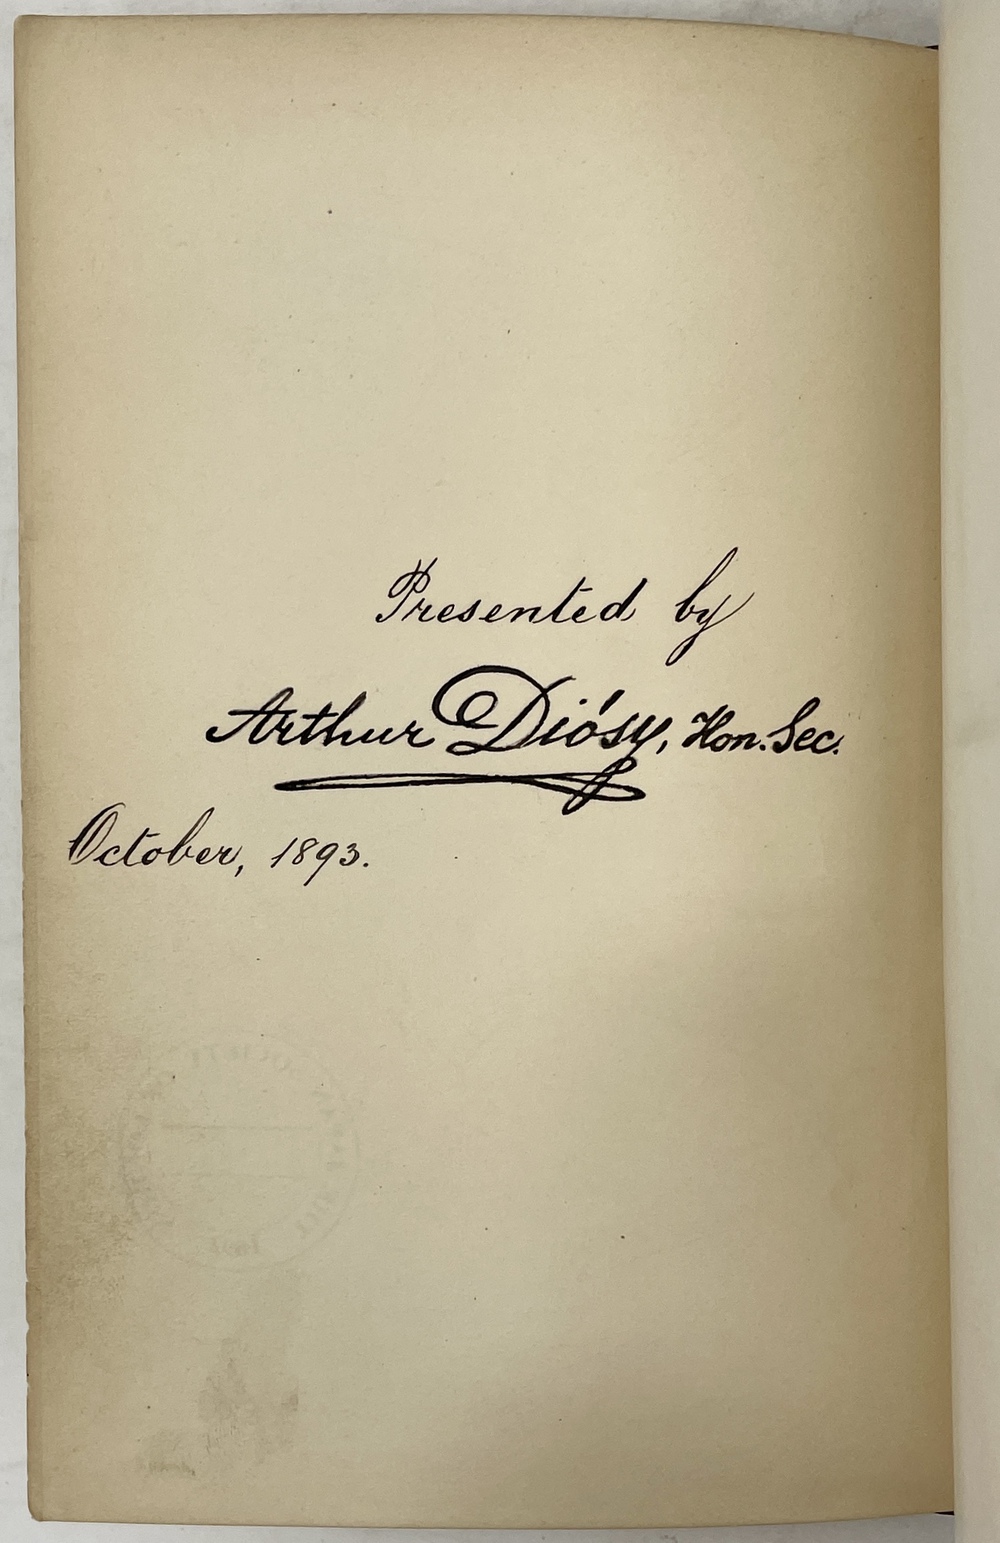 Presented by
Arthur Diósy, Hon. Sec.
October, 1893.